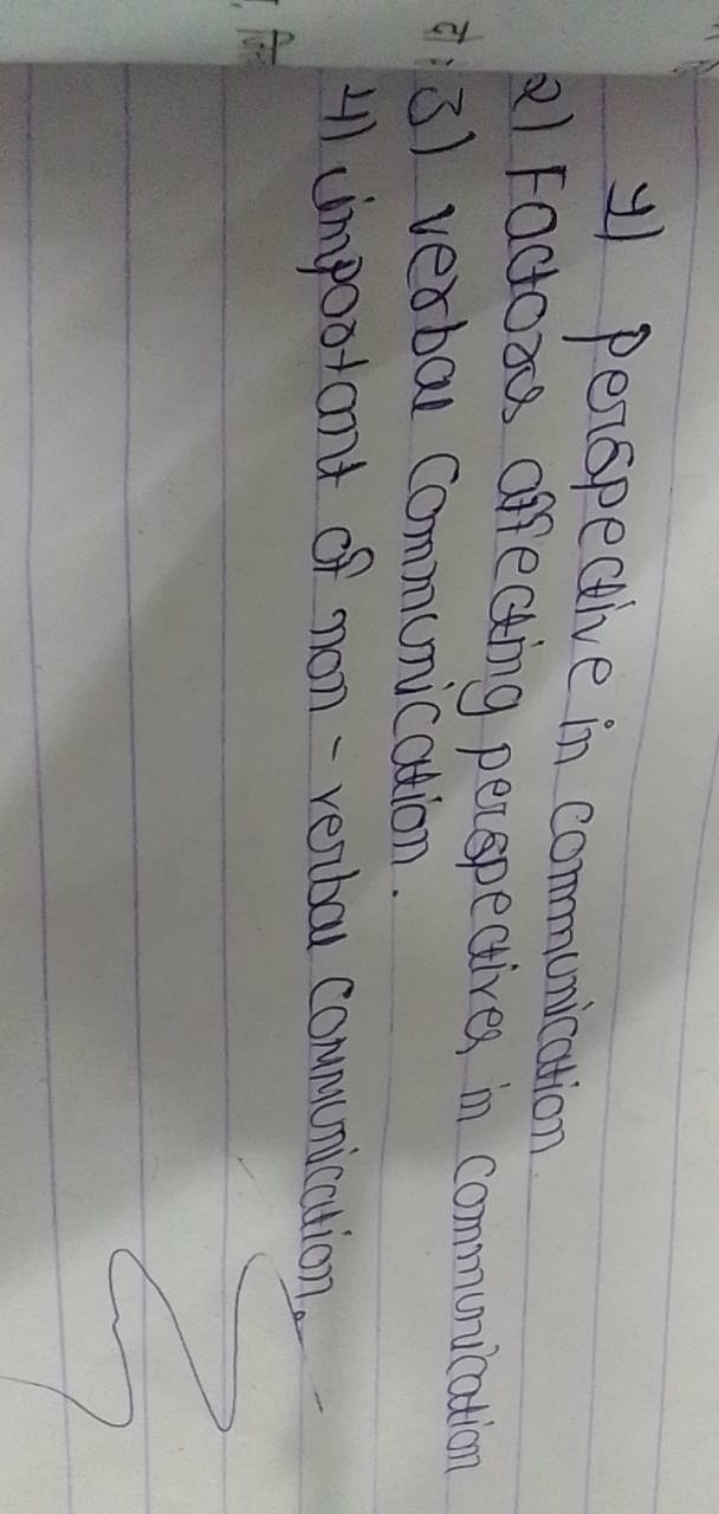 1) perspective in communication
2) Factors affecting perspectives in communication
3) verbal communication.
4) important of non - verbal communication.